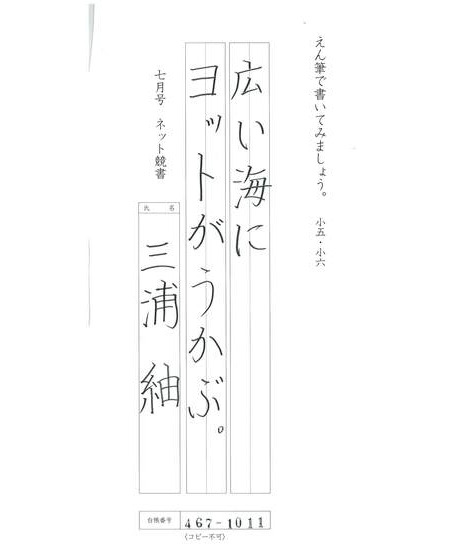 えん筆で書いてみましょう。 小五・小六
広い海に
ヨットがうかぶ。
七月号 ネット競書
氏名
三浦 紬
台帳番号 467-1011
〈コピー不可〉